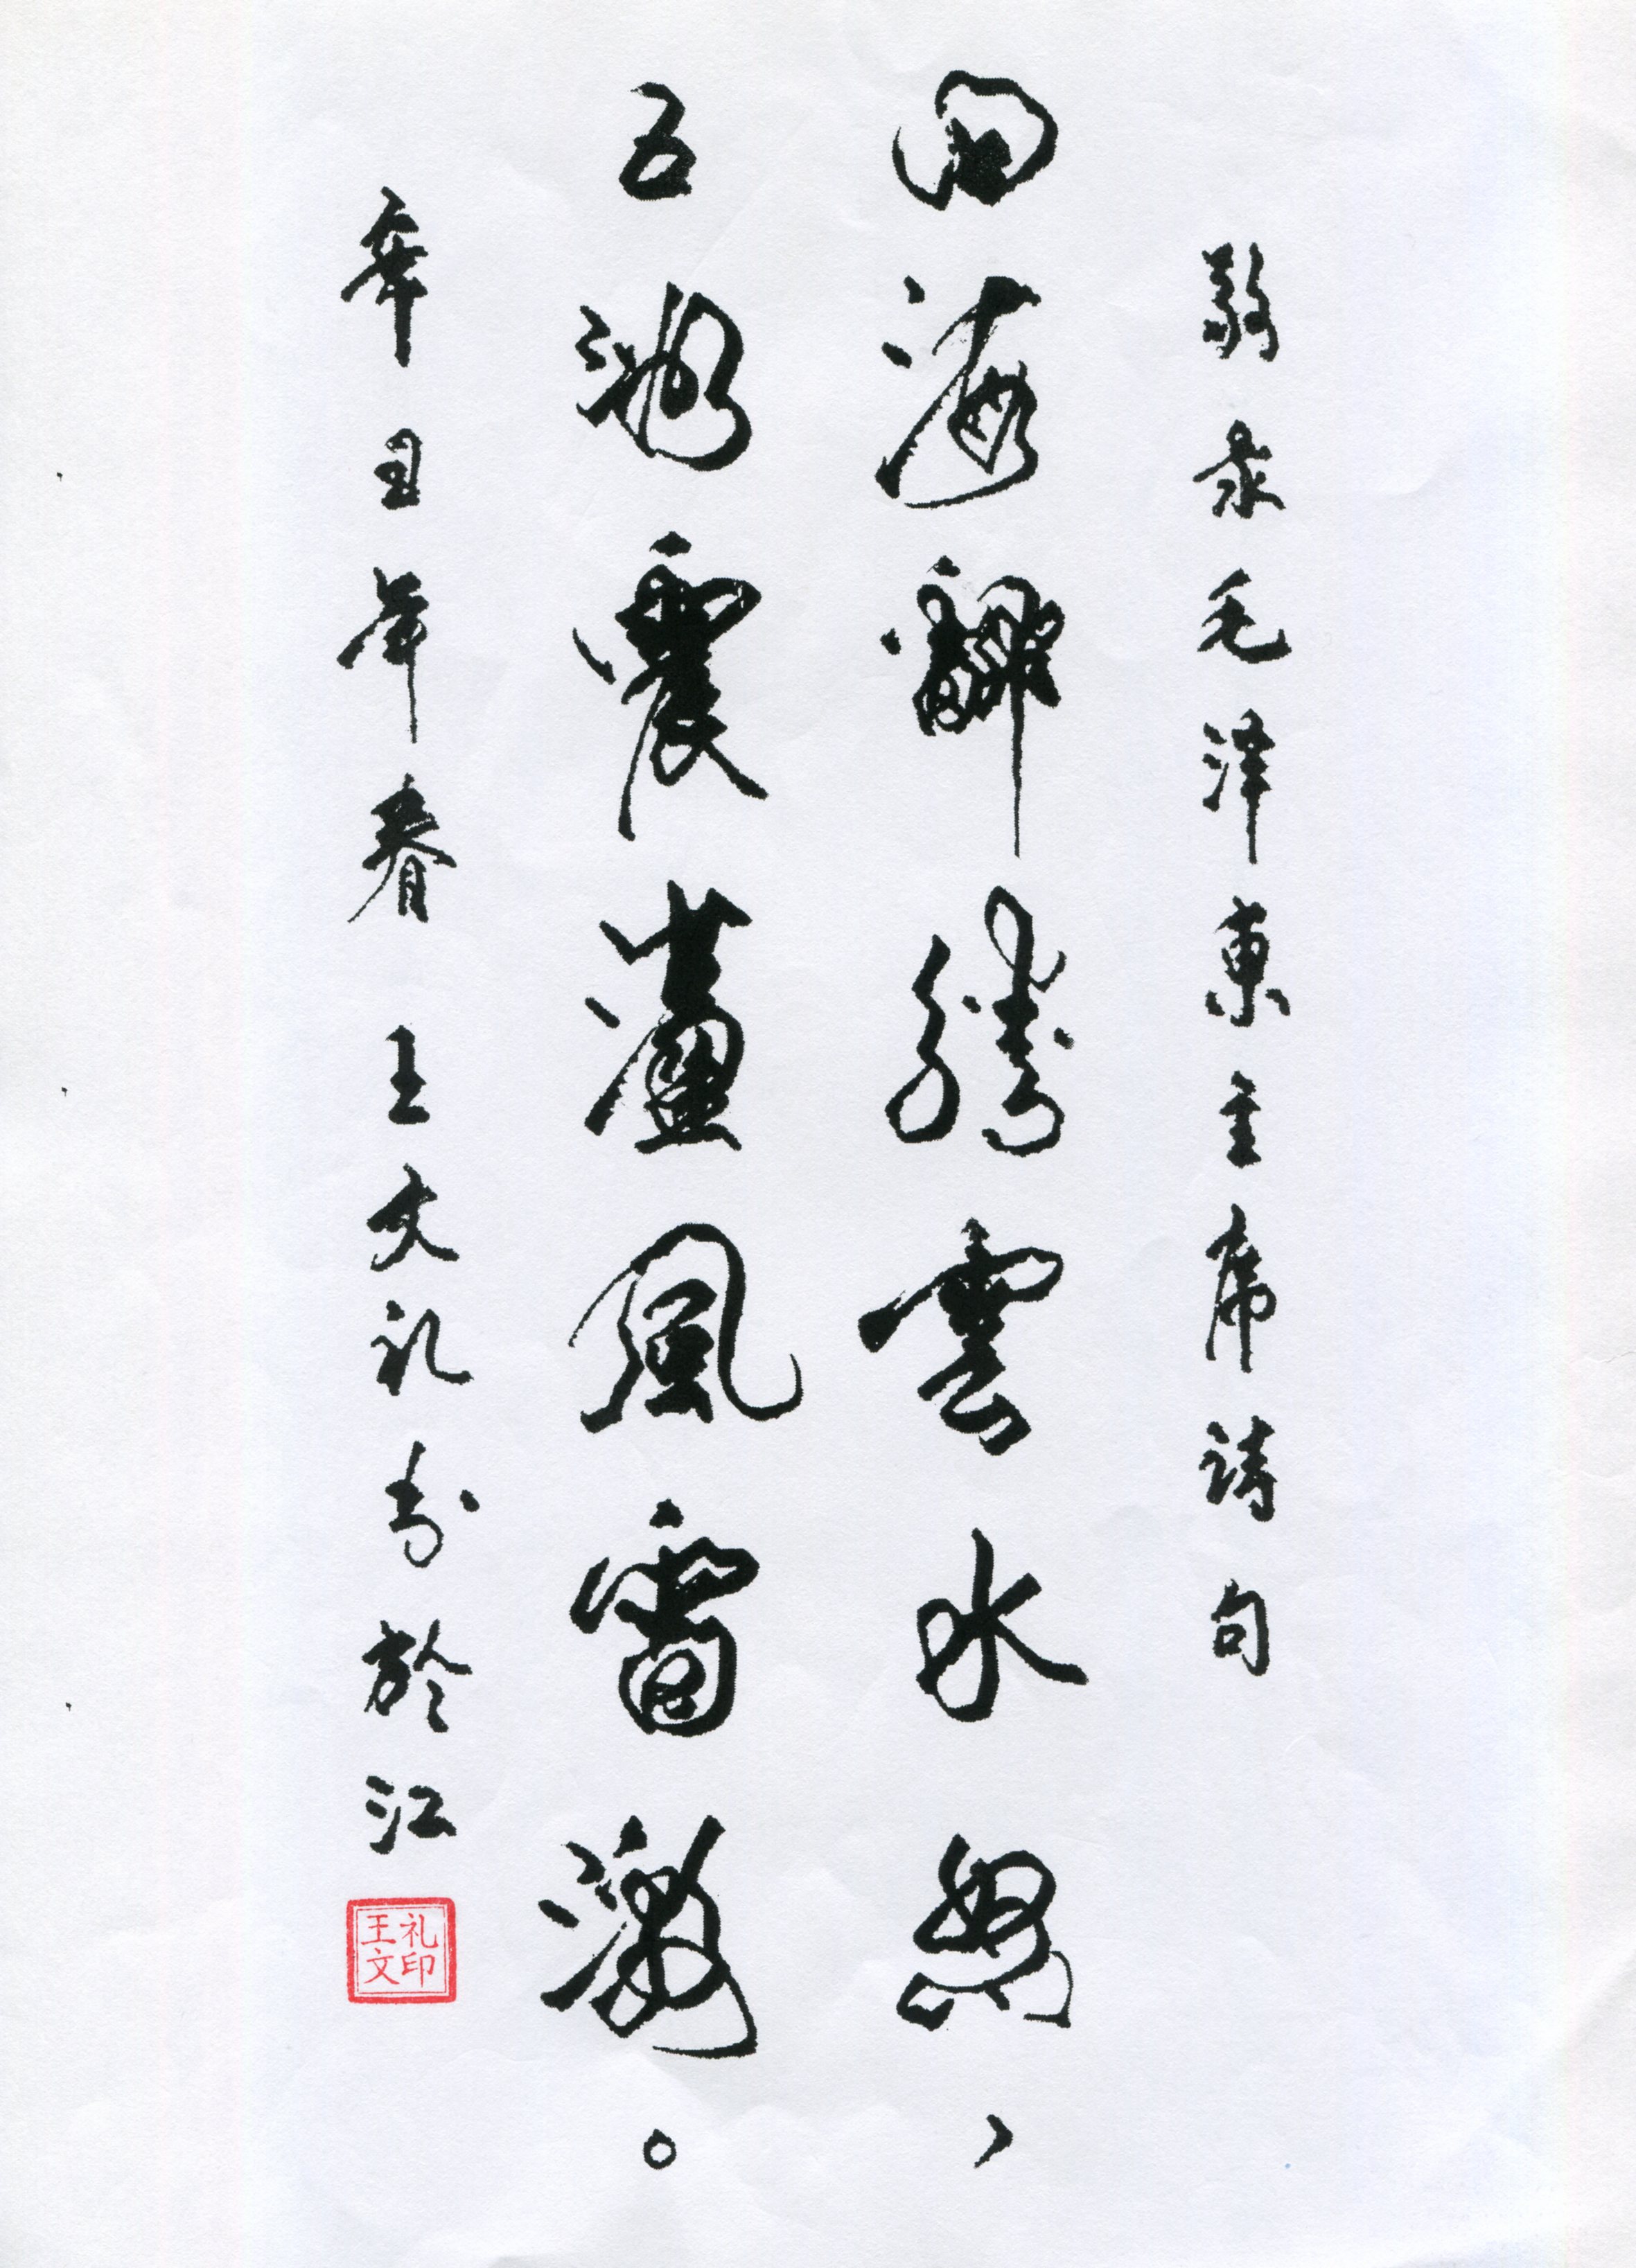 敬录毛泽東主席诗句
四海翻騰雲水怒，
五洲震蘯風雷激。
辛丑年春王文礼书於江
王文礼印